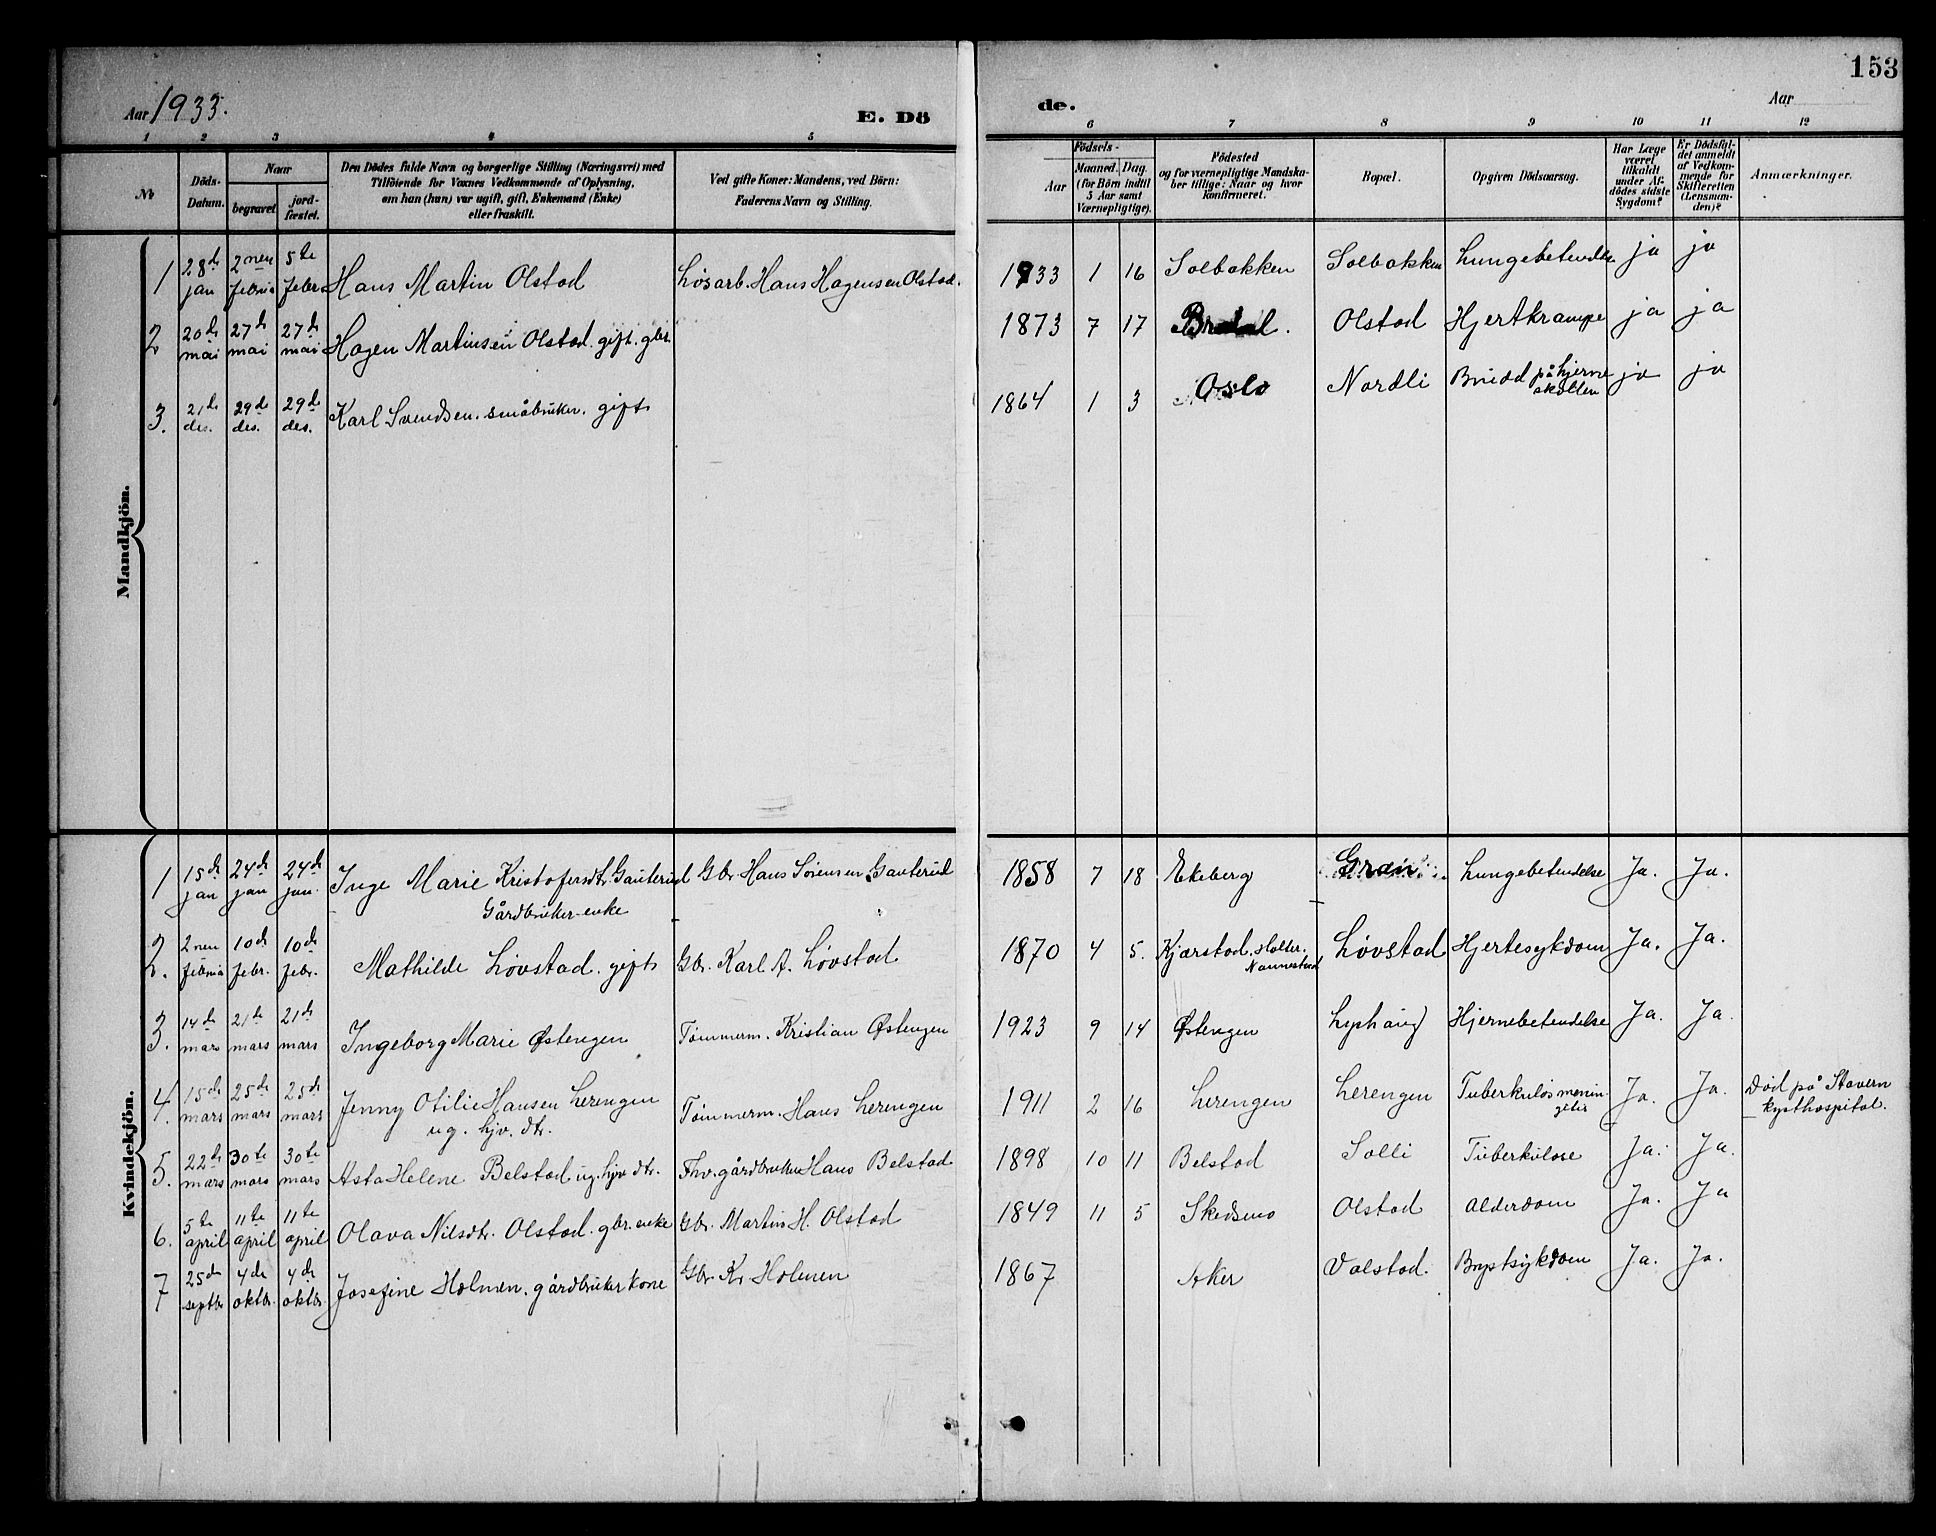 153
Aar 1933.
E. Dö
de.
Aar
1 2 3 4 5
6 7 8 9 10 11 12
№
Döds-
Datum.
Naar
begravet.
jord-
fæstet.
Den Dödes fulde Navn og borgerlige Stilling (Næringsvei) med
Tilföiende for Voxnes Vedkommende af Oplysning,
om han (hun) var ugift, gift, Enkemand (Enke)
eller fraskilt.
Ved gifte Koner: Mandens, ved Börn:
Faderens Navn og Stilling.
Födsels-
Aar
Maaned.
Dag.
(for Börn indtil
5 Aar samt
Værnepligtige).
Födested
og for værnepligtige Mandska-
ber tillige: Naar og hvor
konfirmeret.
Bopæl.
Opgiven Dödsaarsag.
Har Læge
været
tilkaldt
under Af-
dödes sidste
Sygdom?
Er Dödsfal-
det anmeldt
af Vedkom-
mende for
Skifteretten
(Lensman-
den)?
Anmærkninger.
Mandkjön.
1 28de jan 2nen februa 5te febr. Hans Martin Olstad Løsarb. Hans Hagensen Olstad. 1933 1 16 Solbakken Solbakken Lungebetendelse ja ja
2 20de mai 27de mai 27de mai Hagen Martinsen Olstad. gift. gbr. 1873 7 17 Olstad Hjertkrampe ja ja
3. 21de des. 29de des. 29de des. Karl Svendsen. småbruker. gift 1864 1 3 Oslo Nordli Brudd på hjerne
skallen ja ja
Kvindekjön.
1 15de jan 24de jan 24de jan. Inge Marie Kristofersdtr. Gauterud Gbr. Hans Sørensen Gauterud 1858 7 18 Ekeberg Gran Lungebetendelse Ja. Ja.
Gårdbruker-enke
2. 2nen februa 10de febr. 10de febr. Mathilde Løvstad. gift Gbr. Karl A. Løvstad 1870 4 5. Kjærstad. Holter.
Nannestad Løvstad Hjertesykdom Ja. Ja.
3. 14de mars 21de mars 21de mars Ingeborg Marie Østengen Tømmerm. Kristian Østengen 1923 9 14 Østengen Lyshaug Hjernebetendelse Ja. Ja.
4. 15de mars 25de mars 25de mars Jenny Otilie Hansen Lerengen Tømmerm. Hans Lerengen 1911 2 16 Lerengen Lerengen Tuberkuløs menin-
gitis Ja. Ja. Død på Stavern
kysthospital.
ug. hjv. dtr.
5. 22de mars 30te mars 30te mars Asta Helene Belstad ug. hjv dtr. Fhv. gårdbruker Hans Belstad 1898 10 11 Belstad Solli Tuberkulose Ja. Ja.
6. 5te april 11te april 11te april Olava Nilsdtr. Olstad. gbr. enke Gbr. Martin H. Olstad 1849 11 5 Skedsmo Olstad Alderdom Ja. Ja
7 25de septbr 4de oktbr. 4de oktbr. Josefine Holmen. gårdbruker kone Gbr Kr Holmen 1867 Aker Valstad. Brystsykdom Ja. Ja.